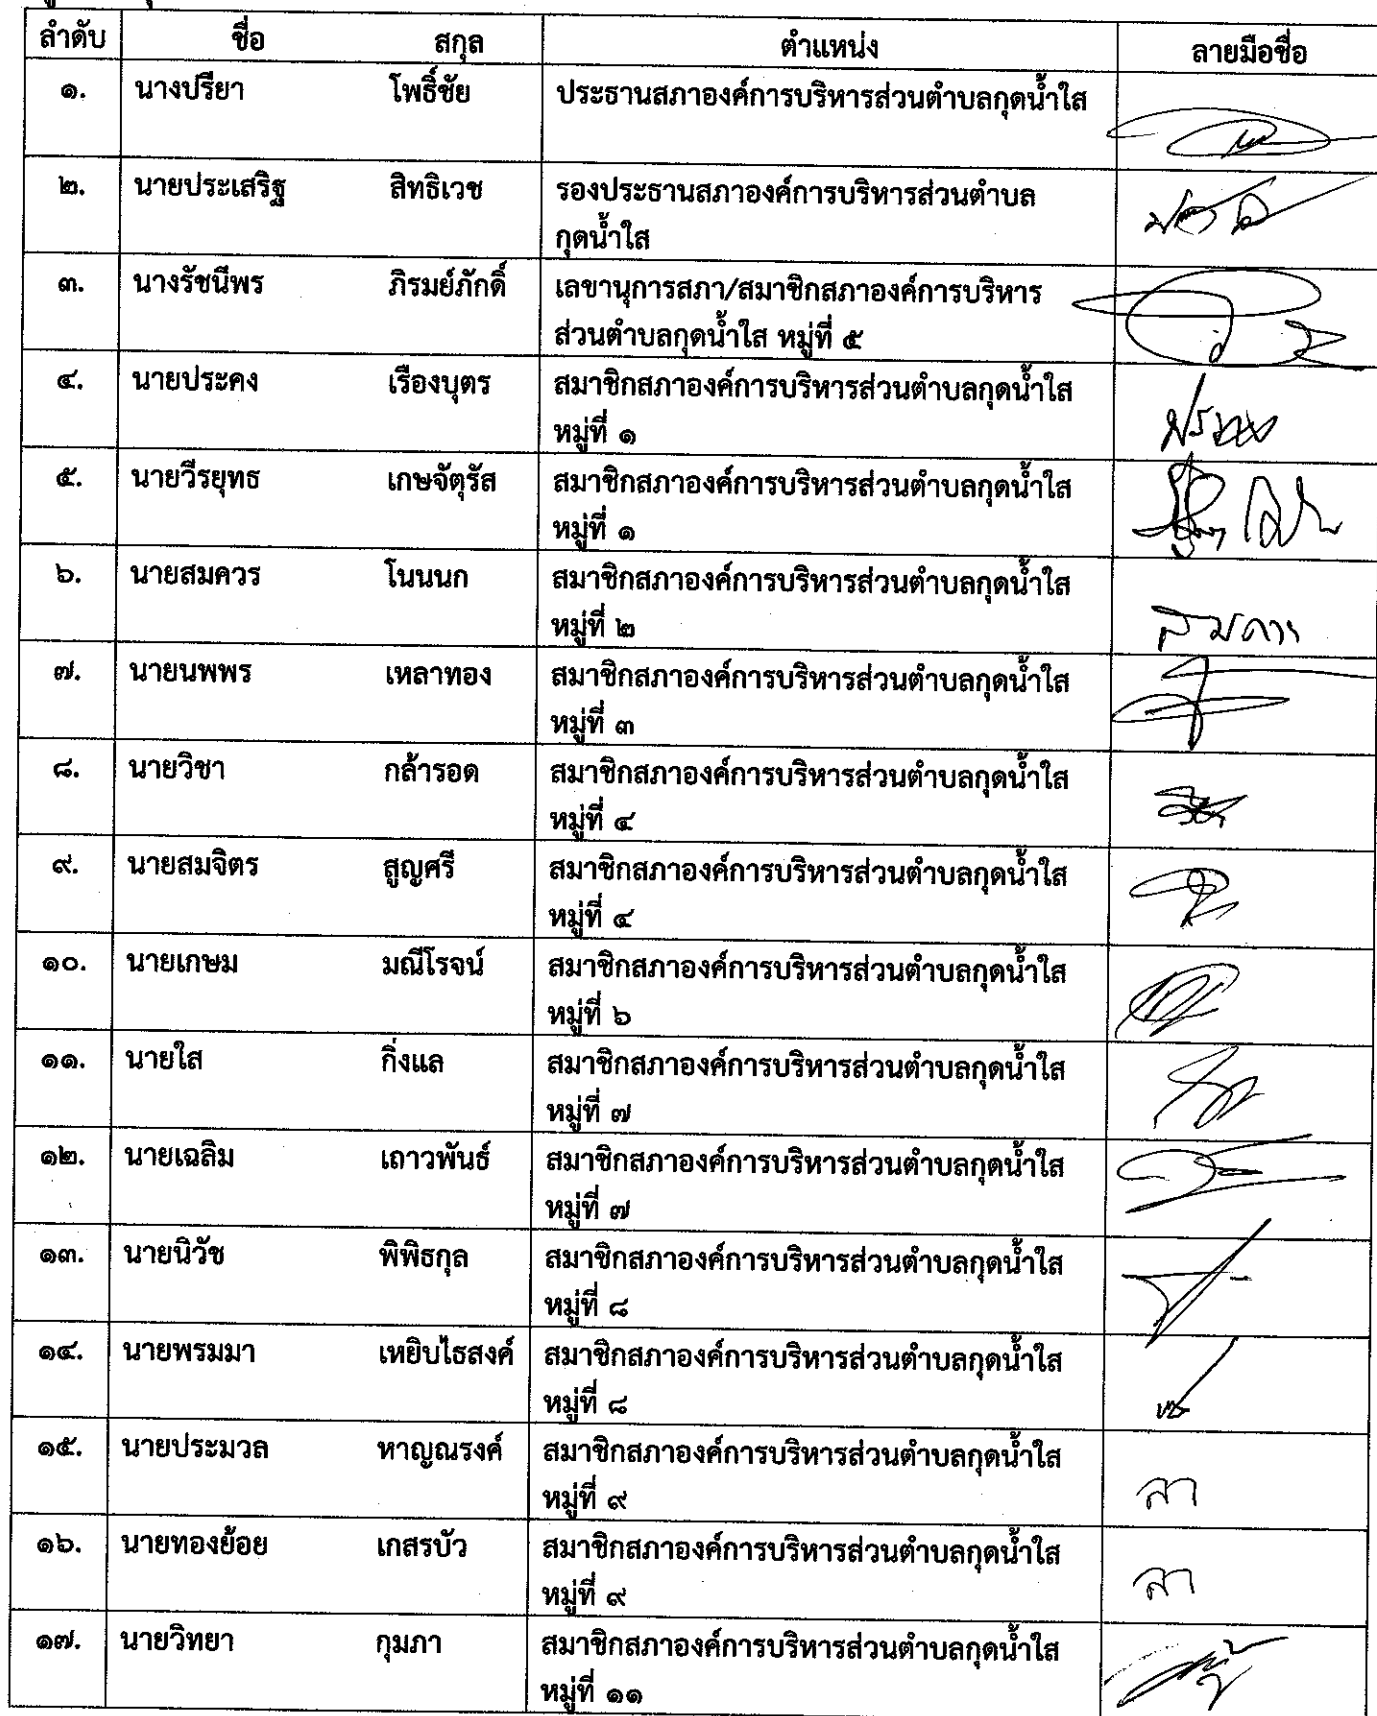 ลำดับ ชื่อ สกุล ตำแหน่ง ลายมือชื่อ
๑. นางปรียา โพธิ์ชัย ประธานสภาองค์การบริหารส่วนตำบลกุดน้ำใส
๒. นายประเสริฐ สิทธิเวช รองประธานสภาองค์การบริหารส่วนตำบล
กุดน้ำใส
๓. นางรัชนีพร ภิรมย์ภักดิ์ เลขานุการสภา/สมาชิกสภาองค์การบริหาร
ส่วนตำบลกุดน้ำใส หมู่ที่ ๕
๔. นายประคง เรืองบุตร สมาชิกสภาองค์การบริหารส่วนตำบลกุดน้ำใส
หมู่ที่ ๑
๕. นายวีรยุทธ เกษจัตุรัส สมาชิกสภาองค์การบริหารส่วนตำบลกุดน้ำใส
หมู่ที่ ๑
๖. นายสมควร โนนนก สมาชิกสภาองค์การบริหารส่วนตำบลกุดน้ำใส
หมู่ที่ ๒ สมควร
๗. นายนพพร เหลาทอง สมาชิกสภาองค์การบริหารส่วนตำบลกุดน้ำใส
หมู่ที่ ๓
๘. นายวิชา กล้ารอด สมาชิกสภาองค์การบริหารส่วนตำบลกุดน้ำใส
หมู่ที่ ๔
๙. นายสมจิตร สูญศรี สมาชิกสภาองค์การบริหารส่วนตำบลกุดน้ำใส
หมู่ที่ ๔
๑๐. นายเกษม มณีโรจน์ สมาชิกสภาองค์การบริหารส่วนตำบลกุดน้ำใส
หมู่ที่ ๖
๑๑. นายใส กิ่งแล สมาชิกสภาองค์การบริหารส่วนตำบลกุดน้ำใส
หมู่ที่ ๗
๑๒. นายเฉลิม เถาวพันธ์ สมาชิกสภาองค์การบริหารส่วนตำบลกุดน้ำใส
หมู่ที่ ๗
๑๓. นายนิวัช พิพิธกุล สมาชิกสภาองค์การบริหารส่วนตำบลกุดน้ำใส
หมู่ที่ ๘
๑๔. นายพรมมา เหยิบไธสงค์ สมาชิกสภาองค์การบริหารส่วนตำบลกุดน้ำใส
หมู่ที่ ๘
๑๕. นายประมวล หาญณรงค์ สมาชิกสภาองค์การบริหารส่วนตำบลกุดน้ำใส
หมู่ที่ ๙ ลา
๑๖. นายทองย้อย เกสรบัว สมาชิกสภาองค์การบริหารส่วนตำบลกุดน้ำใส
หมู่ที่ ๙ ลา
๑๗. นายวิทยา กุมภา สมาชิกสภาองค์การบริหารส่วนตำบลกุดน้ำใส
หมู่ที่ ๑๑